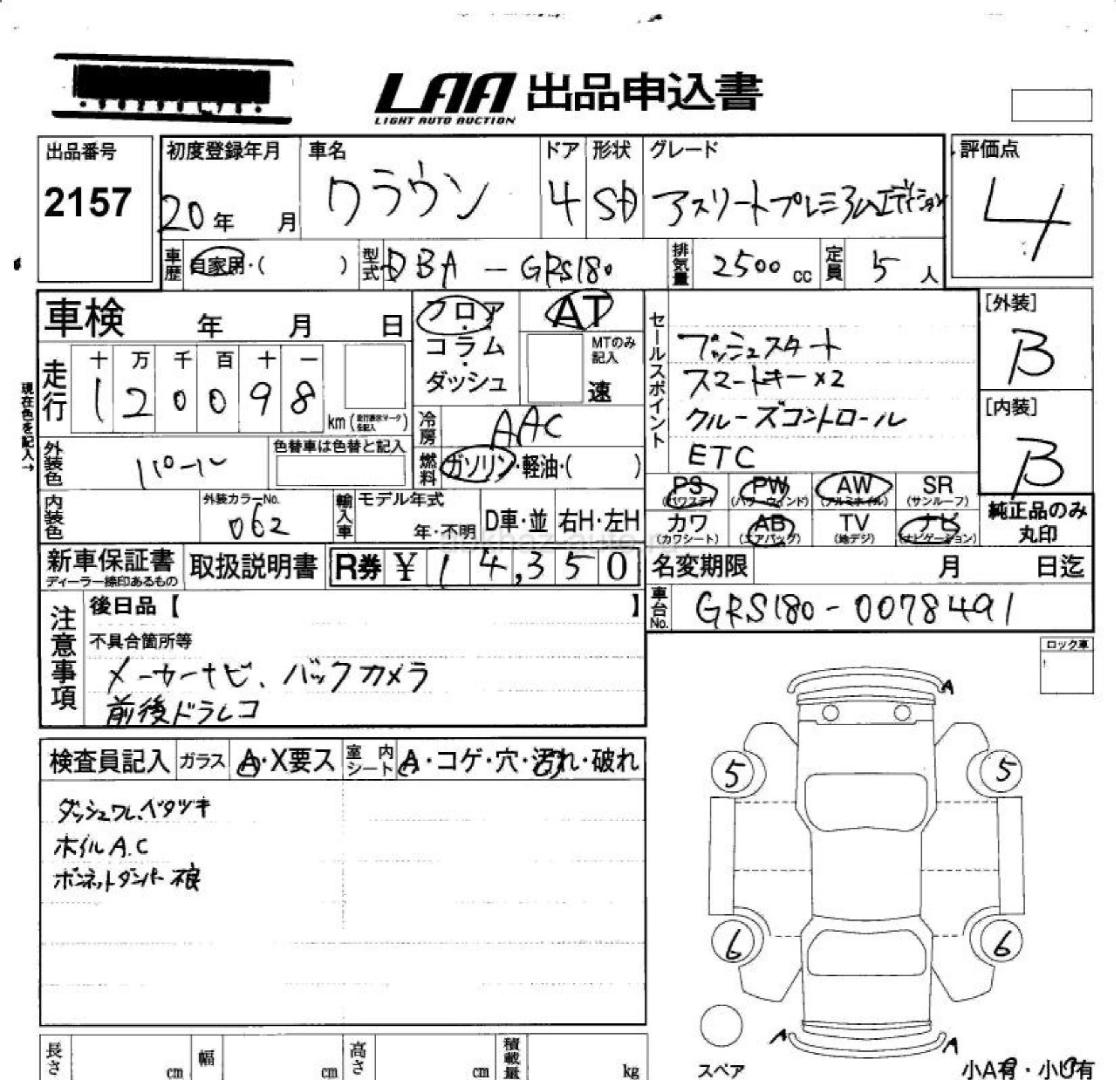 LAA 出品申込書
LIGHT AUTO AUCTION
出品番号
2157
初度登録年月
20年 月
車名
クラウン
ドア
4
形状
SD
グレード
アスリートプレミアムエディション
評価点
4
車歴 自家用・( )
型式 DBA - GRS180
排気量 2500 cc
定員 5 人
車検 年 月 日
走行
十 万 千 百 十 一
1 2 0 0 9 8 km
現在色を記入→
フロア・コラム・ダッシュ
AT
MTのみ記入
速
冷房 AAC
燃料 ガソリン・軽油・( )
外装色 パール
色替車は色替と記入
内装色
外装カラーNo.
062
輸入車 モデル年式
年・不明
D車・並 右H・左H
セールスポイント
プッシュスタート
スマートキー×2
クルーズコントロール
ETC
PS (パワステ)
PW (パワーウインド)
AW (アルミホイル)
SR (サンルーフ)
カワ (カワシート)
AB (エアバッグ)
TV (地デジ)
ナビ (ナビゲーション)
[外装]
B
[内装]
B
純正品のみ丸印
新車保証書
ディーラー捺印あるもの
取扱説明書
R券 ¥ 14,350
名変期限 月 日迄
車台No. GRS180-0078491
注意事項
後日品【 】
不具合箇所等
メーカーナビ、バックカメラ
前後ドラレコ
ロック車
検査員記入
ガラス A・X要ス
室内シート A・コゲ・穴・汚れ・破れ
ダッシュワレ、ベタツキ
ホイルA.C
ボンネットダンパー不良
A
5 5
6 6
A A
スペア
小A有・小U有
長さ cm
幅 cm
高さ cm
積載量 kg